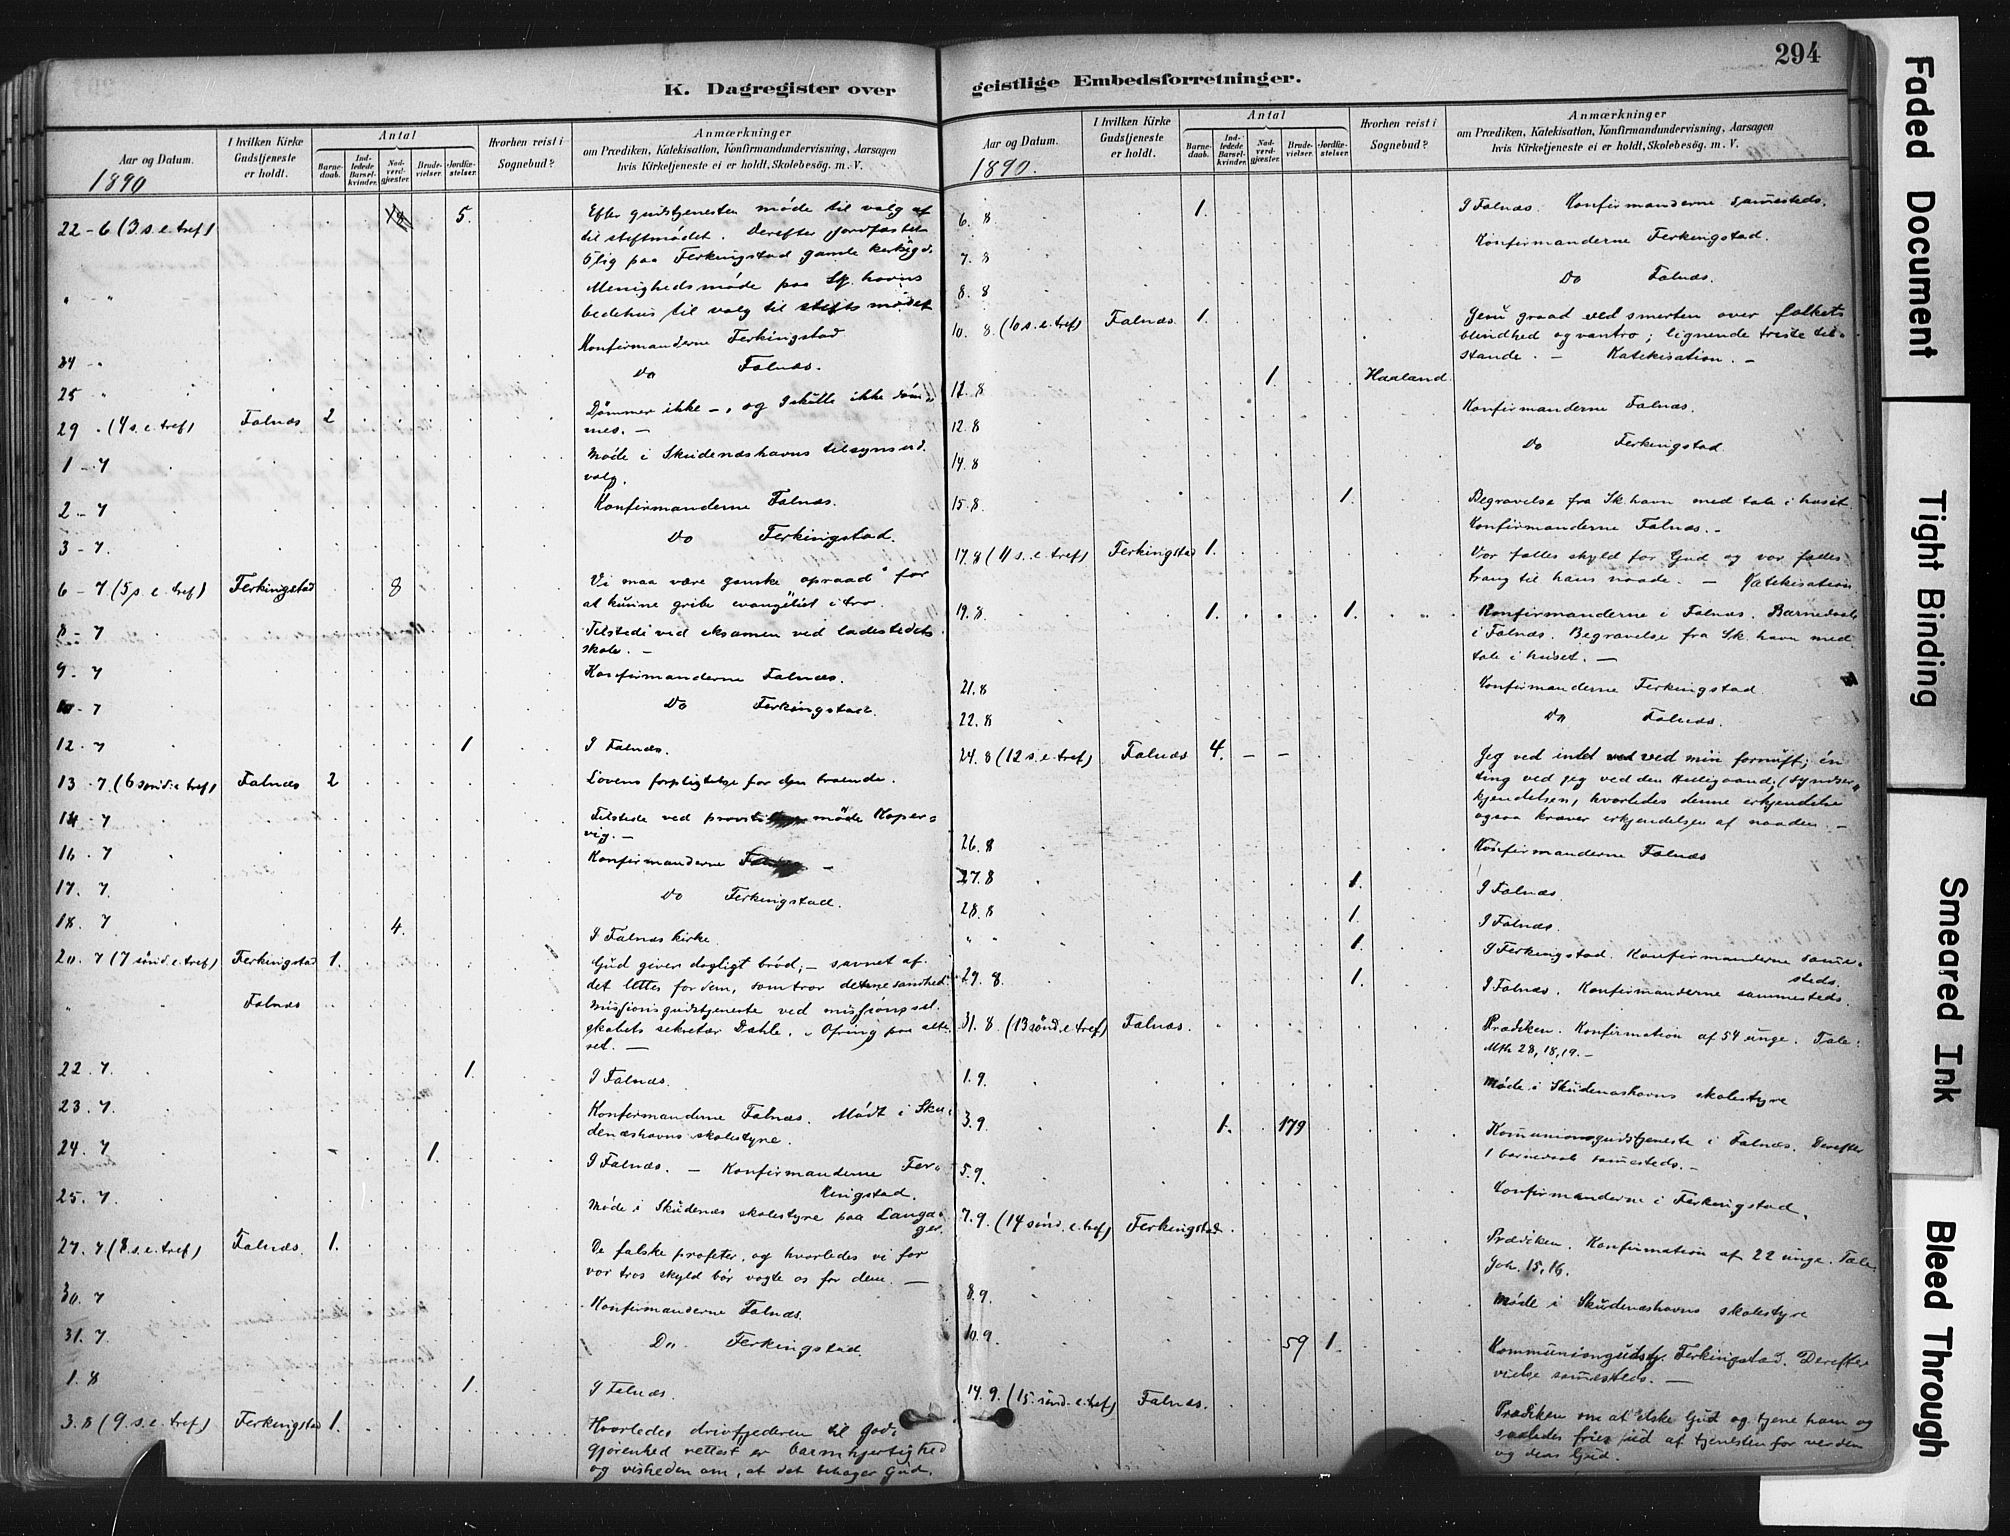 294
K. Dagregister over
Aar og Datum.
I hvilken Kirke Gudstjeneste er holdt.
Antal
Barne-daab.
Ind-ledede Barsel-kvinder.
Nad-verd-gjæster.
Brude-vielser.
Jordfæ-stelser.
Hvorhen reist i Sognebud?
Anmærkninger
om Prædiken, Katekisation, Konfirmandundervisning, Aarsagen
hvis Kirketjeneste ei er holdt, Skolebesøg. m. V.
1890
22-6 (3.s.e.tref) 5. Efter gudstjenesten møde til valg af
til stiftmødet. Derefter jordfæstet
5 lig paa Ferkingstad gamle
" " Menighedsmøde paa havns
bedehus til valg til stiftsmødet
24 " Konfirmanderne Ferkingstad
25 " Do Falnæs.
29 " (4 s.e.tref) Falnæs 2 Dømmer ikke –, og I skulle ikke døm-
mes. –
1 - 7 Møde i Skudenæshavns tilsynsud.
valg.
2 - 7 Konfirmanderne Falnæs.
3 - 7. Do Ferkingstad.
6 - 7 (5 s.e.tref) Ferkingstad 8 Vi maa være ganske opraad for
at kunne gribe evangeliet i tro.
8 - 7 Tilstede ved eksamen ved ladestedets
skole. –
9 - 7 Konfirmanderne Falnæs.
10 - 7 Do Ferkingstad.
12 - 7 1 I Falnæs.
13 - 7. (6 sønd.e.tref) Falnæs 2 Lovens forpligtelse for den troende.
14 - 7 Tilstede ved møde Koper-
vig. –
16 - 7 Konfirmanderne –
17. 7 Do Ferkingstad.
18. 7 4. I Falnæs kirke.
20. 7 (7 sønd.e.tref) Ferkingstad 1. Gud giver dagligt brød; – savnet af
det lettes for dem, som tror denne sandhed.
" Falnæs Missionsgudstjeneste ved missionssel-
skabets sekretær Dahle. Ofring paa alte-
ret. –
22. 7. 1. I Falnæs.
23. 7. Konfirmanderne Falnæs. Mødt i Sku-
denæshavns skolestyre.
24. 7 1. I Falnæs. – Konfirmanderne Fer-
kingstad.
25. 7 Møde i Skudenæs skolestyre paa Langaa-
ger.
27. 7 (8 s.e.tref) Falnæs. 1. De falske profeter, og hvorledes vi for
vor tros skyld bør vogte os for dem. –
30. 7 Konfirmanderne Falnæs.
31. 7. Do Ferkingstad.
1. 8 1. I Falnæs.
3. 8 (9. s.e.tref) Ferkingstad 1. Hvorledes drivfjederen til god-
gjørenhed rettest er barmhjertighed
og visheden om, at det behager Gud.
geistlige Embedsforretninger.
Aar og Datum.
I hvilken Kirke Gudstjeneste er holdt.
Antal
Barne-daab.
Ind-ledede Barsel-kvinder.
Nad-verd-gjæster.
Brude-vielser.
Jordfæ-stelser.
Hvorhen reist i Sognebud?
Anmærkninger
om Prædiken, Katekisation, Konfirmandundervisning, Aarsagen
hvis Kirketjeneste ei er holdt, Skolebesøg. m. V.
1890.
6. 8 1. I Falnæs. Konfirmanderne samesteds.
7. 8 Konfirmanderne Ferkingstad.
8. 8 Do Falnæs.
10. 8. (10 s.e.tref) Falnæs. 1. Jesu graad ved smerten over folkets
blindhed og vantro; lignende triste til-
stande. – Katekisation. –
11. 8 1. Haaland
12. 8 Konfirmanderne Falnæs.
14. 8 Do Ferkingstad.
15. 8 1. Begravelse fra Sk. havn med tale i huset.
Konfirmanderne Falnæs. –
17. 8 (11 s.e.tref) Ferkingstad 1. Vor fælles skyld for Gud og vor fælles
trang til hans naade. – Katekisation
19. 8 1. 1. Konfirmanderne i Falnæs. Barnedaab
i Falnæs. Begravelse fra Sk. havn med
tale i huset. –
21. 8 Konfirmanderne Ferkingstad
22. 8 Do Falnæs.
24. 8 (12 s.e.tref) Falnæs 4. – – Jeg ved intet ved min fornuft; én
ting ved jeg ved den Helligaand, (syndser-
kjendelsen, hvorledes denne erkjendelse
ogsaa kræver erkjendelsen af naaden. –
26. 8 Konfirmanderne Falnæs
27. 8 1. I Falnæs.
28. 8 1. I Falnæs.
" " 1. I Ferkingstad. Konfirmanderne same-
steds.
29. 8. 1. I Falnæs. Konfirmanderne sammesteds.
31. 8. (13 sønd.e.tref) Falnæs. Prædiken. Konfirmation af 54 unge. Tale:
Mth 28, 18, 19. –
1. 9. Møde i Skudenæshavns skolestyre
3. 9. 1. 179 Komunionsgudstjeneste i Falnæs. Derefter
1 barnedaab samesteds. –
5. 9. Konfirmanderne i Ferkingstad.
7. 9. (14 sønd.e.tref) Ferkingstad. Prædiken. Konfirmation af 22 unge. Tale
Joh. 15, 16.
8. 9. Møde i Skudenæshavns skolestyre
10. 9. 59 1. Kommuniongudstj. Ferkingstad. Derefter
vielse samesteds. –
14. 9. (15. sønd.e.tref) Falnæs. Prædiken om at elske Gud og tjene ham og
saaledes fries ud af tjenesten for verden
og dens Gud.
Faded Document
Tight Binding
Smeared Ink
Bleed Through